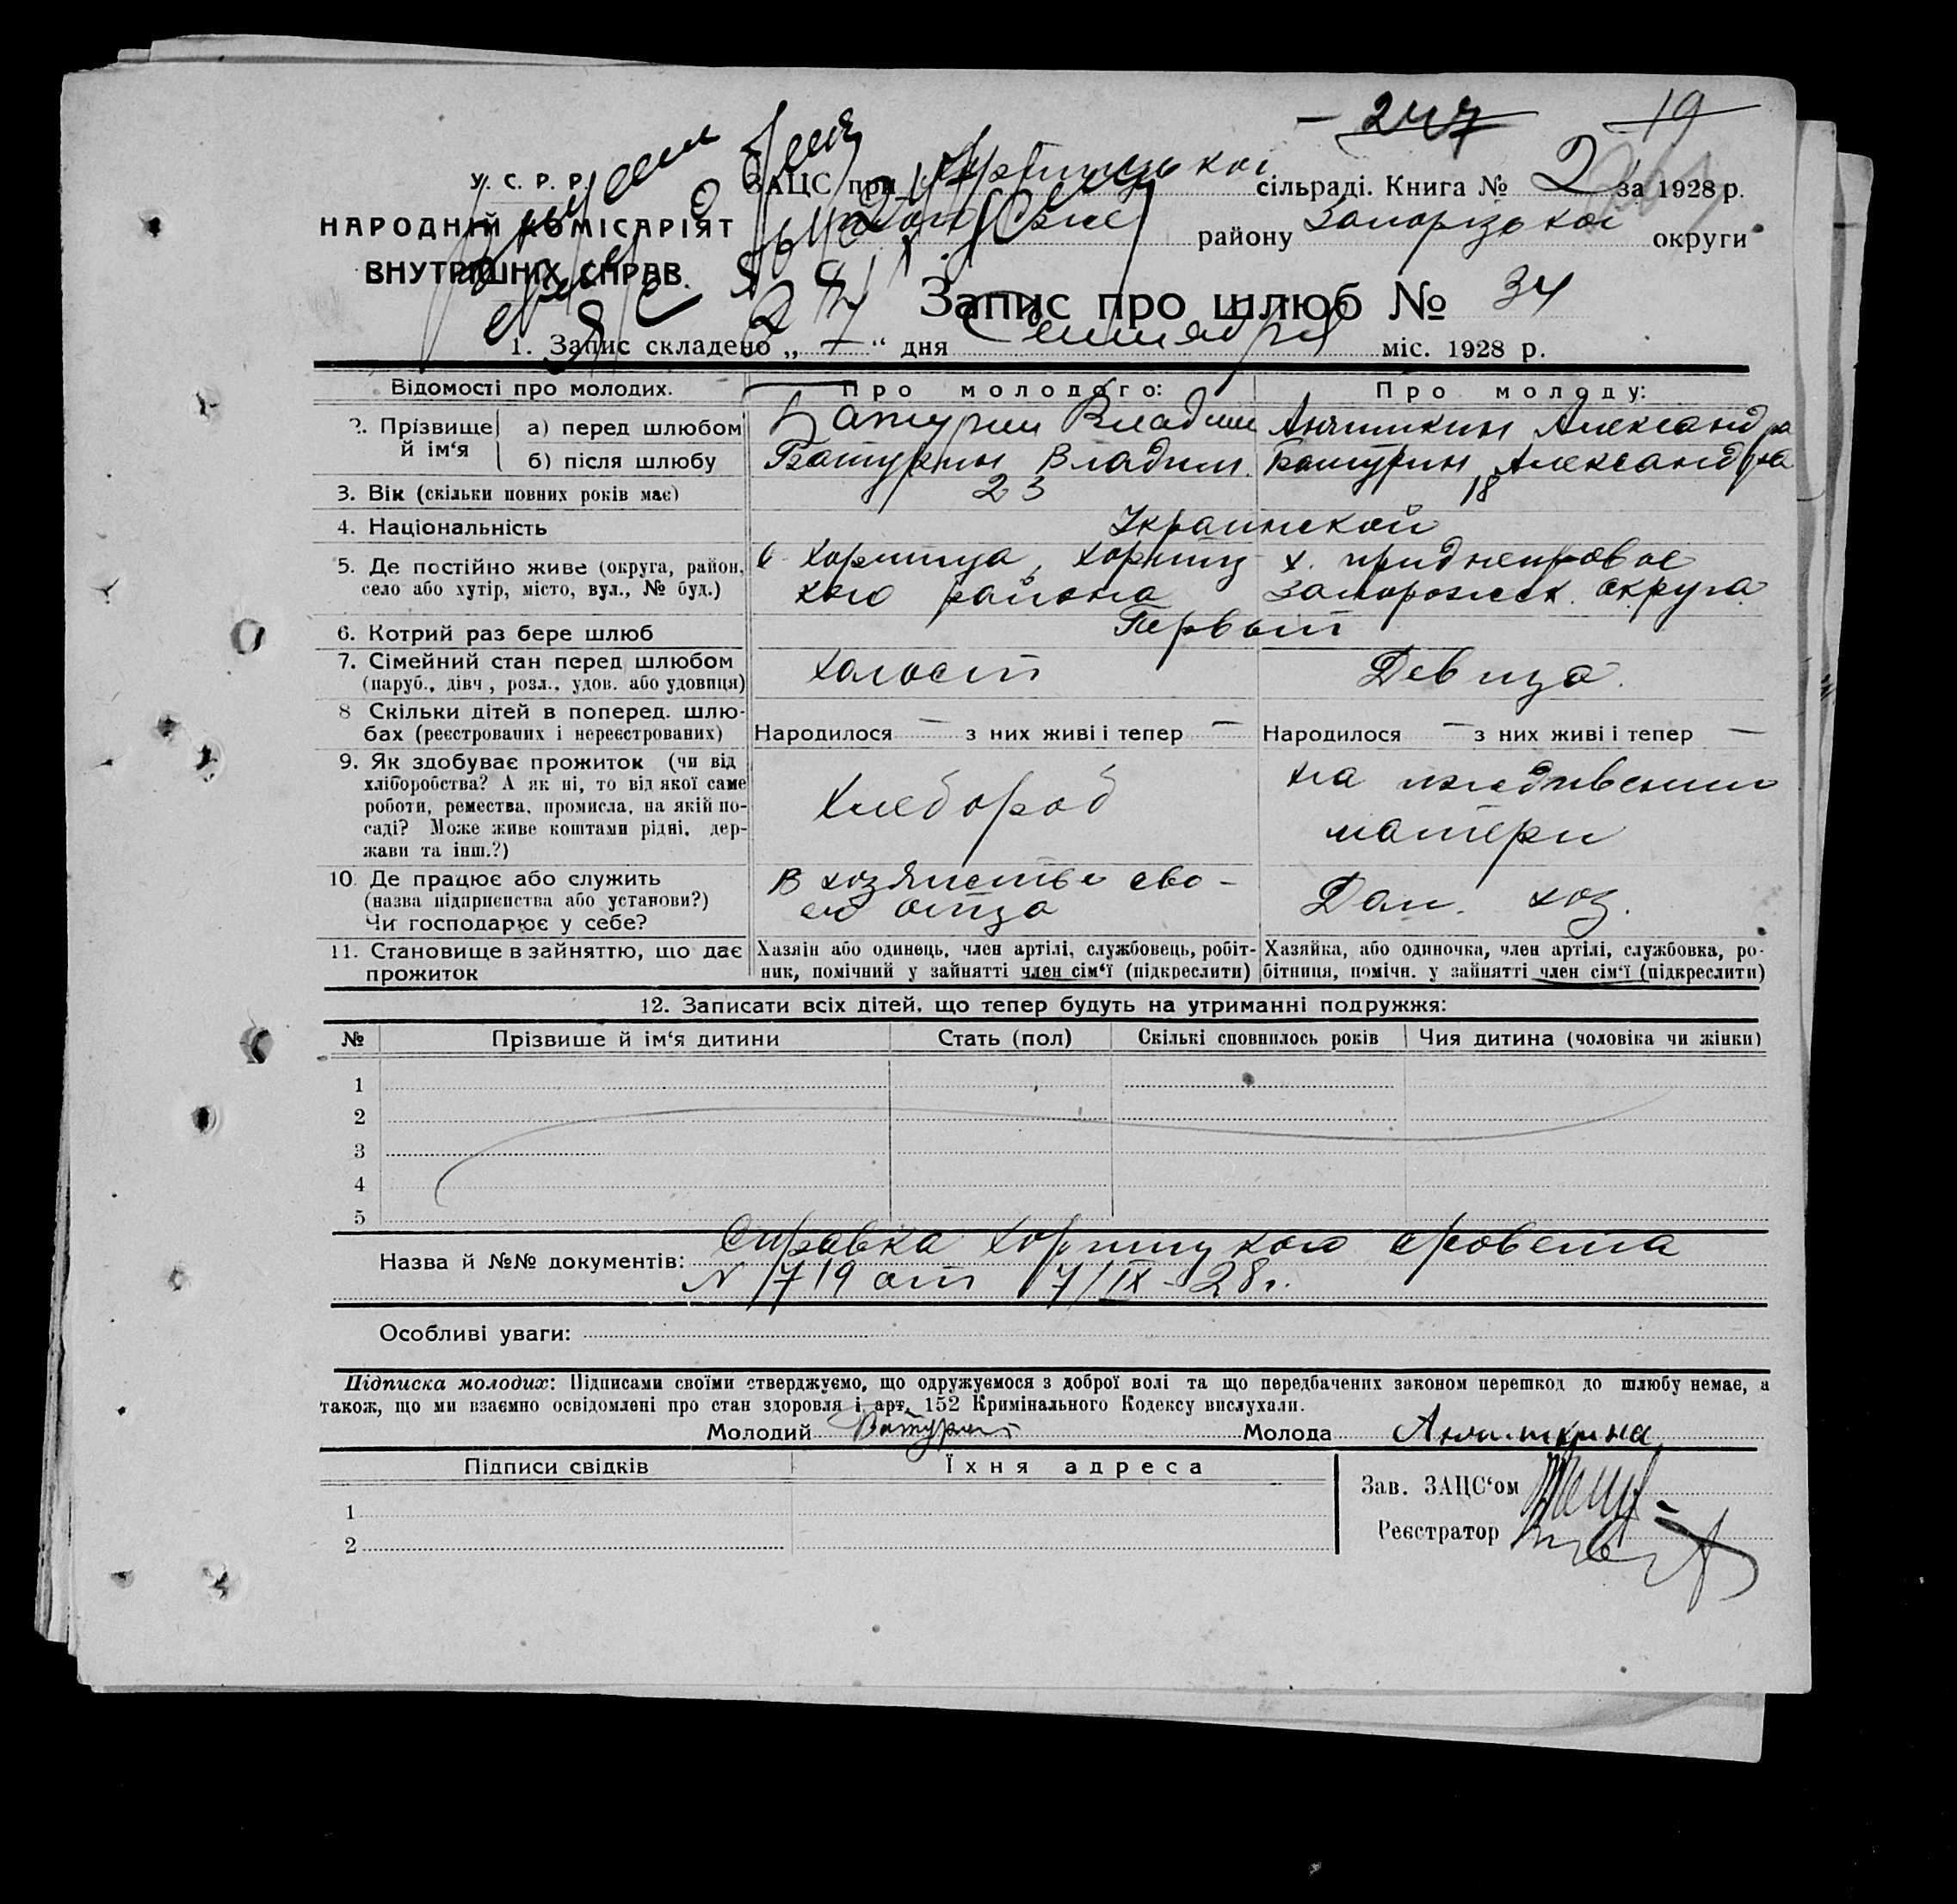 247 19
У. С. Р. Р.
НАРОДНІЙ КОМІСАРІЯТ
ВНУТРІШНІХ СПРАВ.
ЗАЦС при Хортицької сільраді. Книга № 2 за 1928 р.
району Запорізької округи
Запис про шлюб № 34
1. Запис складено „ 7 “ дня Сентября міс. 1928 р.
Відомості про молодих. Про молодого: Про молоду:
2. Прізвище й ім‘я а) перед шлюбом Батурин Владим Анчишкин Александра
б) після шлюбу Батурин Владим. Батурин Александра
3. Вік (скільки повних років має) 23 18
4. Національність Украинской
5. Де постійно живе (округа, район, с. Хортица, Хортиц х. придпепровое
село або хутір, місто, вул., № буд.) кого района Запорожск. округа
6. Котрий раз бере шлюб Первый
7. Сімейний стан перед шлюбом Холост Девица.
(паруб., дівч, розл., удов. або удовиця)
8 Скільки дітей в поперед. шлю-
бах (реєстрованих і нереєстрованих) Народилося — з них живі і тепер — Народилося — з них живі і тепер —
9. Як здобуває прожиток (чи від на иждивении
хліборобства? А як ні, то від якої саме Хлебороб
роботи, ремества, промисла, на якій по- матери
саді? Може живе коштами рідні, дер-
жави та інш.?)
10. Де працює або служить В хозяистве сво-
(назва підприєиства або установи?) его отца Дом. хоз.
Чи господарює у себе?
11. Становище в зайняттю, що дає Хазяін або одинець, член артілі, службовець, робіт- Хазяйка, або одиночка, член артілі, службовка, ро-
прожиток ник, помічний у зайнятті член сім‘ї (підкреслити) бітниця, помічн. у зайнятті член сім‘ї (підкреслити)
12. Записати всіх дітей, що тепер будуть на утриманні подружжя:
№ Прізвише й ім‘я дитини Стать (пол) Скількі сповнилось років Чия дитина (чоловіка чи жінки)
1
2
3
4
5
Назва й №№ документів: Справка Хортицкого совета
N 719 от 7/IX-28г.
Особливі уваги:
Підписка молодих: Підписами своїми стверджуємо, що одружуємося з доброї волі та що передбачених законом перешкод до шлюбу немає, а
також, що ми взаємно освідомлені про стан здоровля і арт. 152 Кримінального Кодексу вислухали.
Молодий Батурин Молода Анчишкина
Підписи свідків Їхня адреса
Зав. ЗАЦС‘ом
1
Реєстратор
2